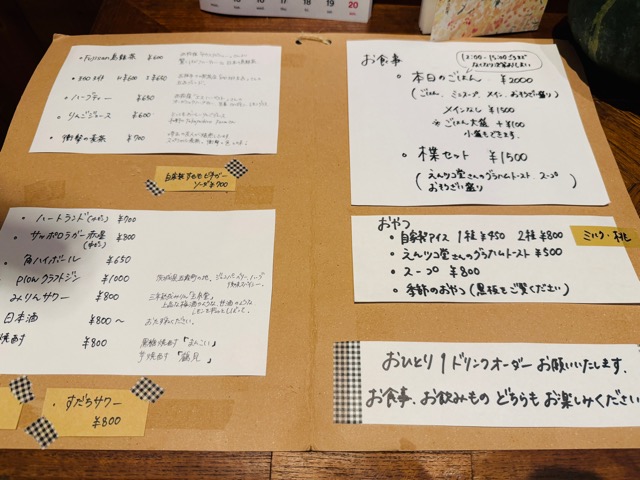 20
Fujisan烏龍茶 ¥600
¥600 ¥650
・ハーブティー ¥650
・りんごジュース ¥600
・衝撃の麦茶 ¥700
自家製すももビネガー
ソーダ¥700
・ハートランド(中ビン) ¥700
・サッポロラガー赤星 ¥800
(中ビン)
・角ハイボール ¥650
・Plowクラフトジン ¥1000
みりんサワー ¥800
日本酒 ¥800〜
お尋ねください。
焼酎 ¥800
黒糖焼酎「まんこい」
芋焼酎「鶴見」
・すだちサワー
¥800
お食事
12:00-15:00ごろまで
なくなり次第おしまい
・本日のごはん ¥2000
(ごはん、ミニスープ、メイン、おそうざい盛り)
メインなし ¥1500
※ごはん大盛 +¥100
小盛もできます。
・楪セット ¥1500
(えんツコ堂さんのグラハムトースト、スープ
おそうざい盛り)
おやつ
・自家製アイス 1種¥450 2種¥800
ミルク・桃
・えんツコ堂さんのグラハムトースト ¥500
・スープ ¥800
・季節のおやつ(黒板をご覧ください)
おひとり1ドリンクオーダーお願いいたします。
お食事、お飲みものどちらもお楽しみください